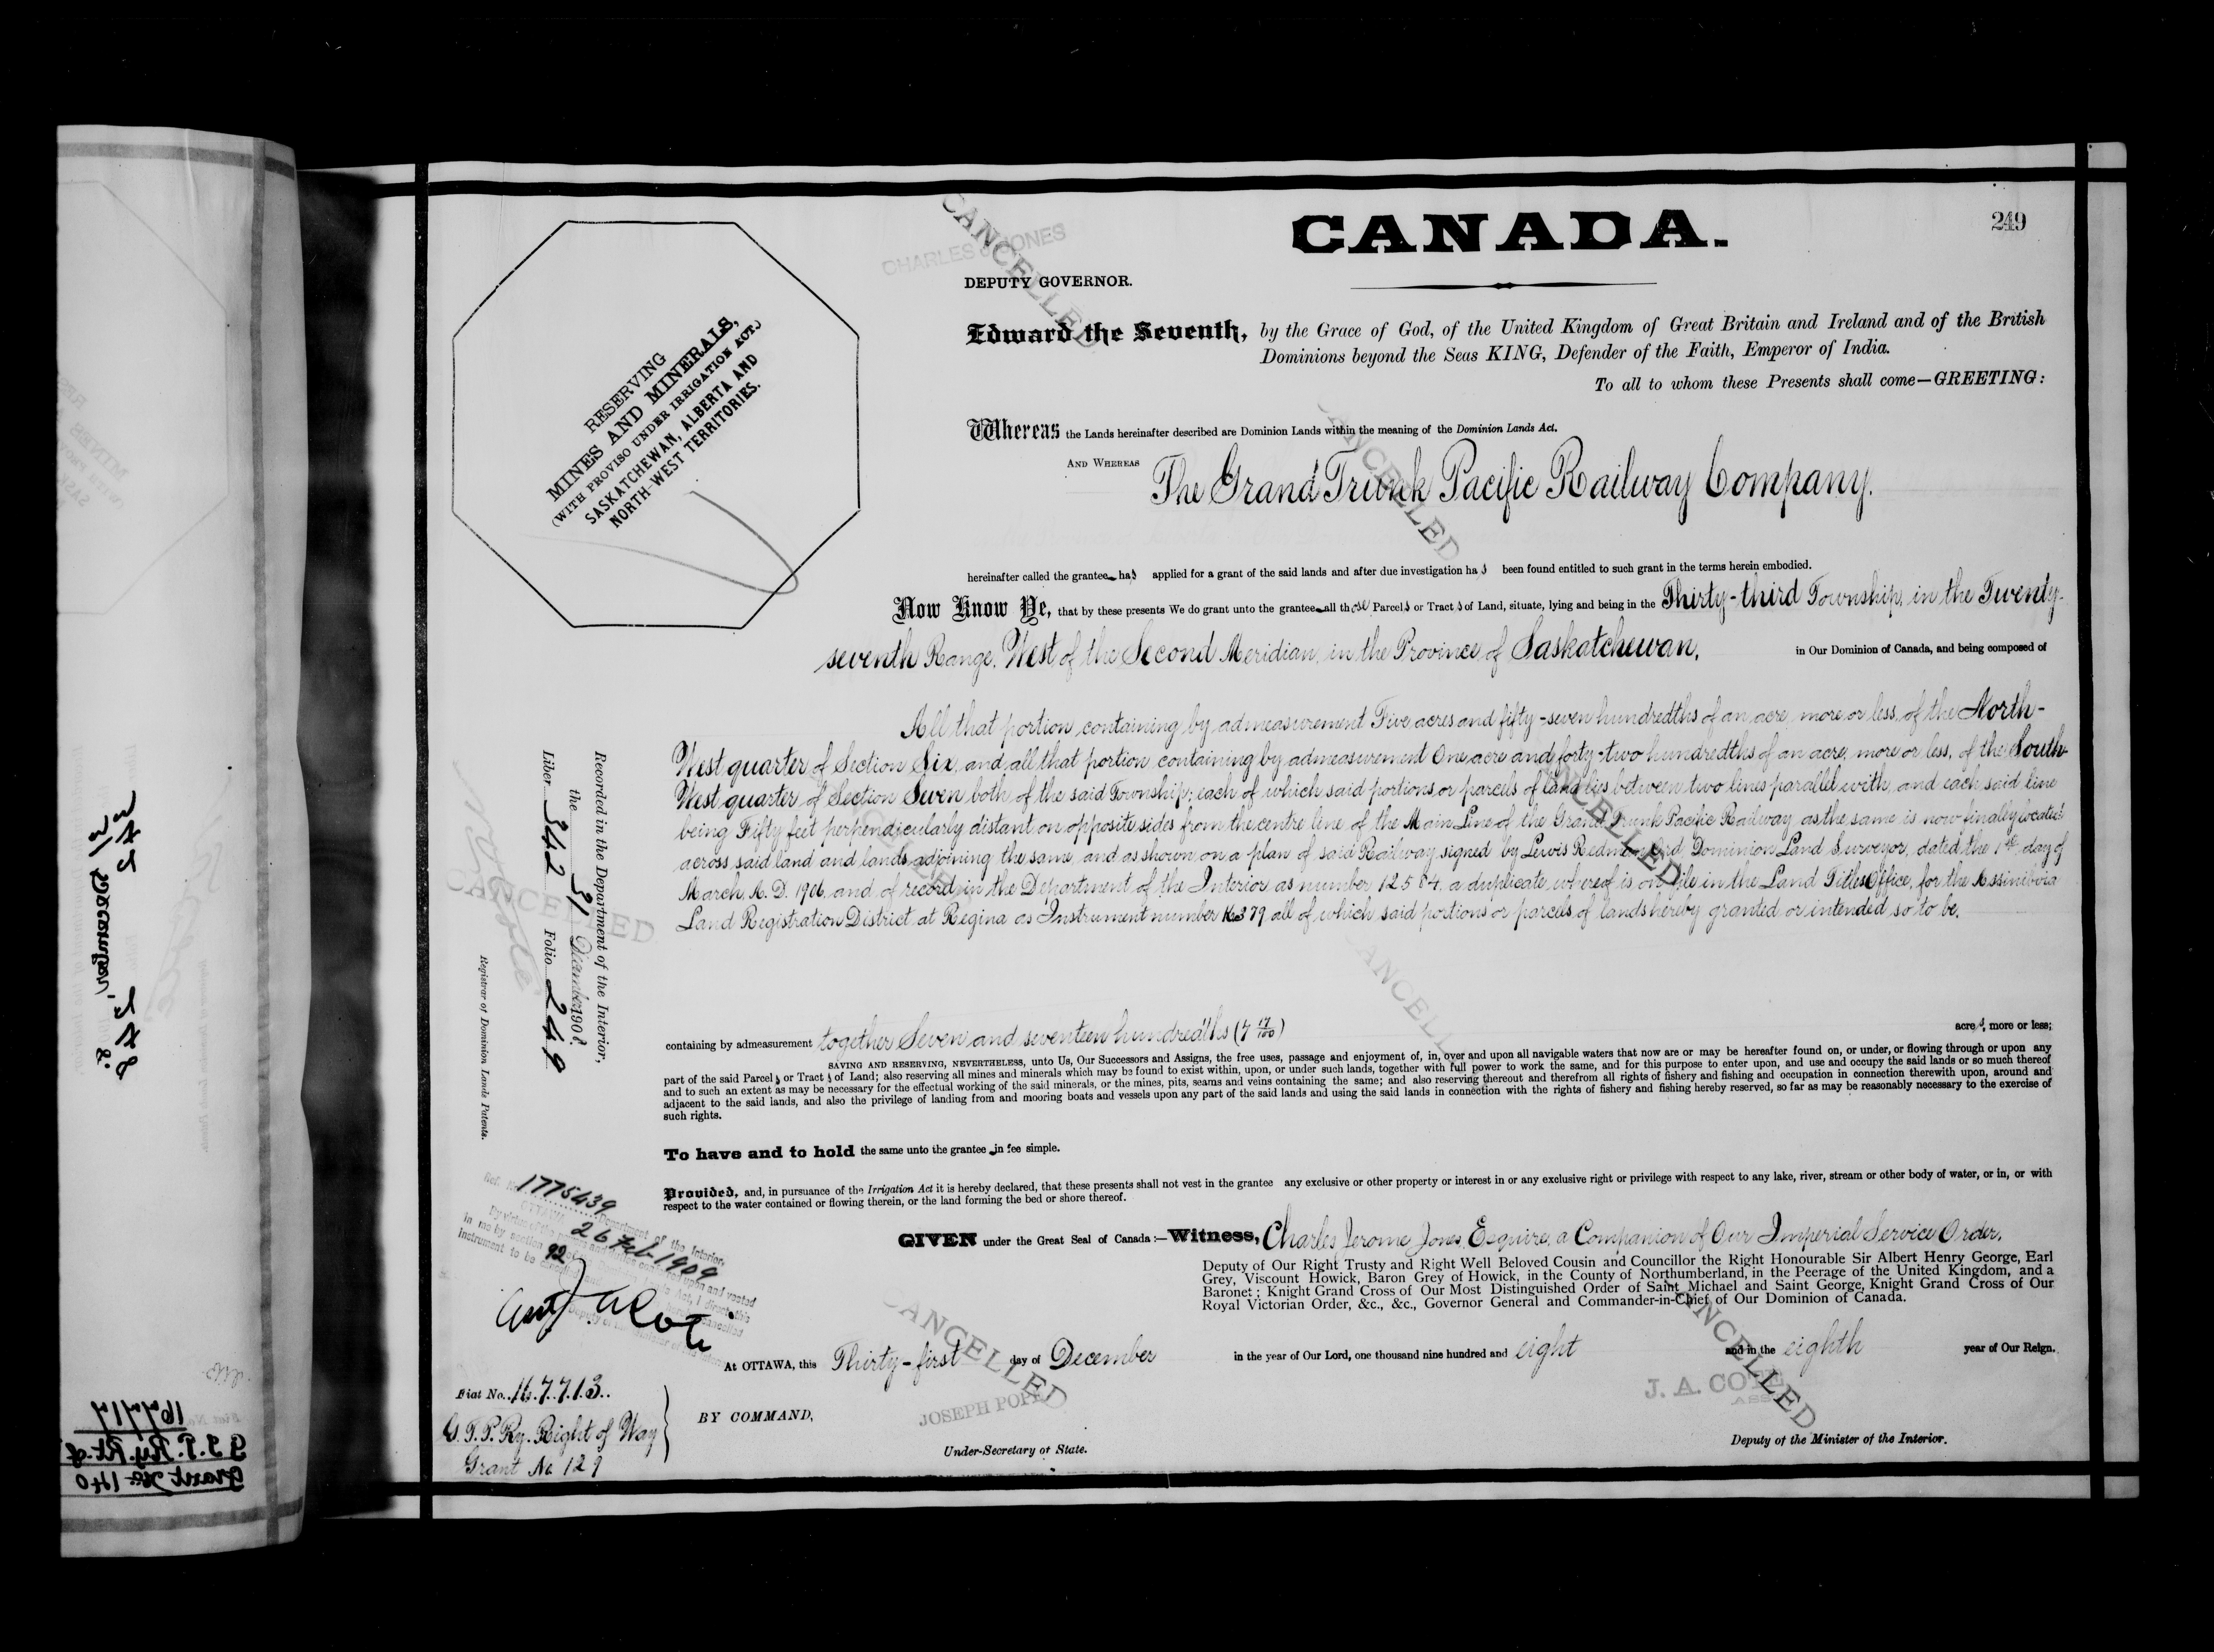 CANADA.
249
CHARLES J. JONES
CANCELLED
DEPUTY GOVERNOR.
Edward the Seventh, by the Grace of God, of the United Kingdom of Great Britain and Ireland and of the British
Dominions beyond the Seas KING, Defender of the Faith, Emperor of India.
To all to whom these Presents shall come—GREETING:
RESERVING
MINES AND MINERALS,
(WITH PROVISO UNDER IRRIGATION ACT.)
SASKATCHEWAN, ALBERTA AND
NORTH-WEST TERRITORIES.
Whereas the Lands hereinafter described are Dominion Lands within the meaning of the Dominion Lands Act.
AND WHEREAS The Grand Trunk Pacific Railway Company.
CANCELLED
hereinafter called the grantee has applied for a grant of the said lands and after due investigation has been found entitled to such grant in the terms herein embodied.
Now Know Ye, that by these presents We do grant unto the grantee all those Parcels or Tracts of Land, situate, lying and being in the Thirty-third Township, in the Twenty-
seventh Range, West of the Second Meridian, in the Province of Saskatchewan, in Our Dominion of Canada, and being composed of
All that portion containing by admeasurement Five acres and fifty-seven hundredths of an acre, more or less, of the North-
West quarter of Section Six, and all that portion containing by admeasurement One acre and forty-two hundredths of an acre, more or less, of the South-
West quarter of Section Seven both of the said Township; each of which said portions or parcels of land lies between two lines parallel with, and each said line
being Fifty feet perpendicularly distant on opposite sides from the centre line of the Main Line of the Grand Trunk Pacific Railway, as the same is now finally located
across said land and lands adjoining the same, and as shown on a plan of said Railway signed by Lewis Redman Ord Dominion Land Surveyor, dated the 1st day of
March, A.D. 1906 and of record in the Department of the Interior as number 12584 a duplicate whereof is on file in the Land Titles Office, for the Assiniboia
Land Registration District at Regina as Instrument number all of which said portions or parcels of lands hereby granted or intended so to be,
containing by admeasurement together Seven and seventeen hundredths (7 17/100) acres, more or less;
SAVING AND RESERVING, NEVERTHELESS, unto Us, Our Successors and Assigns, the free uses, passage and enjoyment of, in, over and upon all navigable waters that now are or may be hereafter found on, or under, or flowing through or upon any
part of the said Parcels or Tracts of Land; also reserving all mines and minerals which may be found to exist within, upon, or under such lands, together with full power to work the same, and for this purpose to enter upon, and use and occupy the said lands or so much thereof
and to such an extent as may be necessary for the effectual working of the said minerals, or the mines, pits, seams and veins containing the same; and also reserving thereout and therefrom all rights of fishery and fishing and occupation in connection therewith upon, around and
adjacent to the said lands, and also the privilege of landing from and mooring boats and vessels upon any part of the said lands and using the said lands in connection with the rights of fishery and fishing hereby reserved, so far as may be reasonably necessary to the exercise of
such rights.
To have and to hold the same unto the grantee in fee simple.
Provided, and, in pursuance of the Irrigation Act it is hereby declared, that these presents shall not vest in the grantee any exclusive or other property or interest in or any exclusive right or privilege with respect to any lake, river, stream or other body of water, or in, or with
respect to the water contained or flowing therein, or the land forming the bed or shore thereof.
GIVEN under the Great Seal of Canada:—Witness, Charles Jerome Jones, Esquire, a Companion of Our Imperial Service Order,
Deputy of Our Right Trusty and Right Well Beloved Cousin and Councillor the Right Honourable Sir Albert Henry George, Earl
Grey, Viscount Howick, Baron Grey of Howick, in the County of Northumberland, in the Peerage of the United Kingdom, and a
Baronet; Knight Grand Cross of Our Most Distinguished Order of Saint Michael and Saint George, Knight Grand Cross of Our
Royal Victorian Order, &c., &c., Governor General and Commander-in-Chief of Our Dominion of Canada.
At OTTAWA, this Thirty-first day of December in the year of Our Lord, one thousand nine hundred and eight and in the eighth year of Our Reign.
BY COMMAND,
JOSEPH POPE
Under-Secretary of State.
CANCELLED
J. A. COTE
Deputy of the Minister of the Interior.
CANCELLED
Recorded in the Department of the Interior,
the 31 December 1908
Liber 342 Folio 249
Registrar of Dominion Lands Patents.
Ref. No. 1775439
Department of the Interior,
OTTAWA 26 Feb 1909
Fiat No. 167713
G.T.P. Ry. Right of Way
Grant No 129
342 248
31 December, 8
167717
G.T.P. Ry. Rt. of
Grant No 140